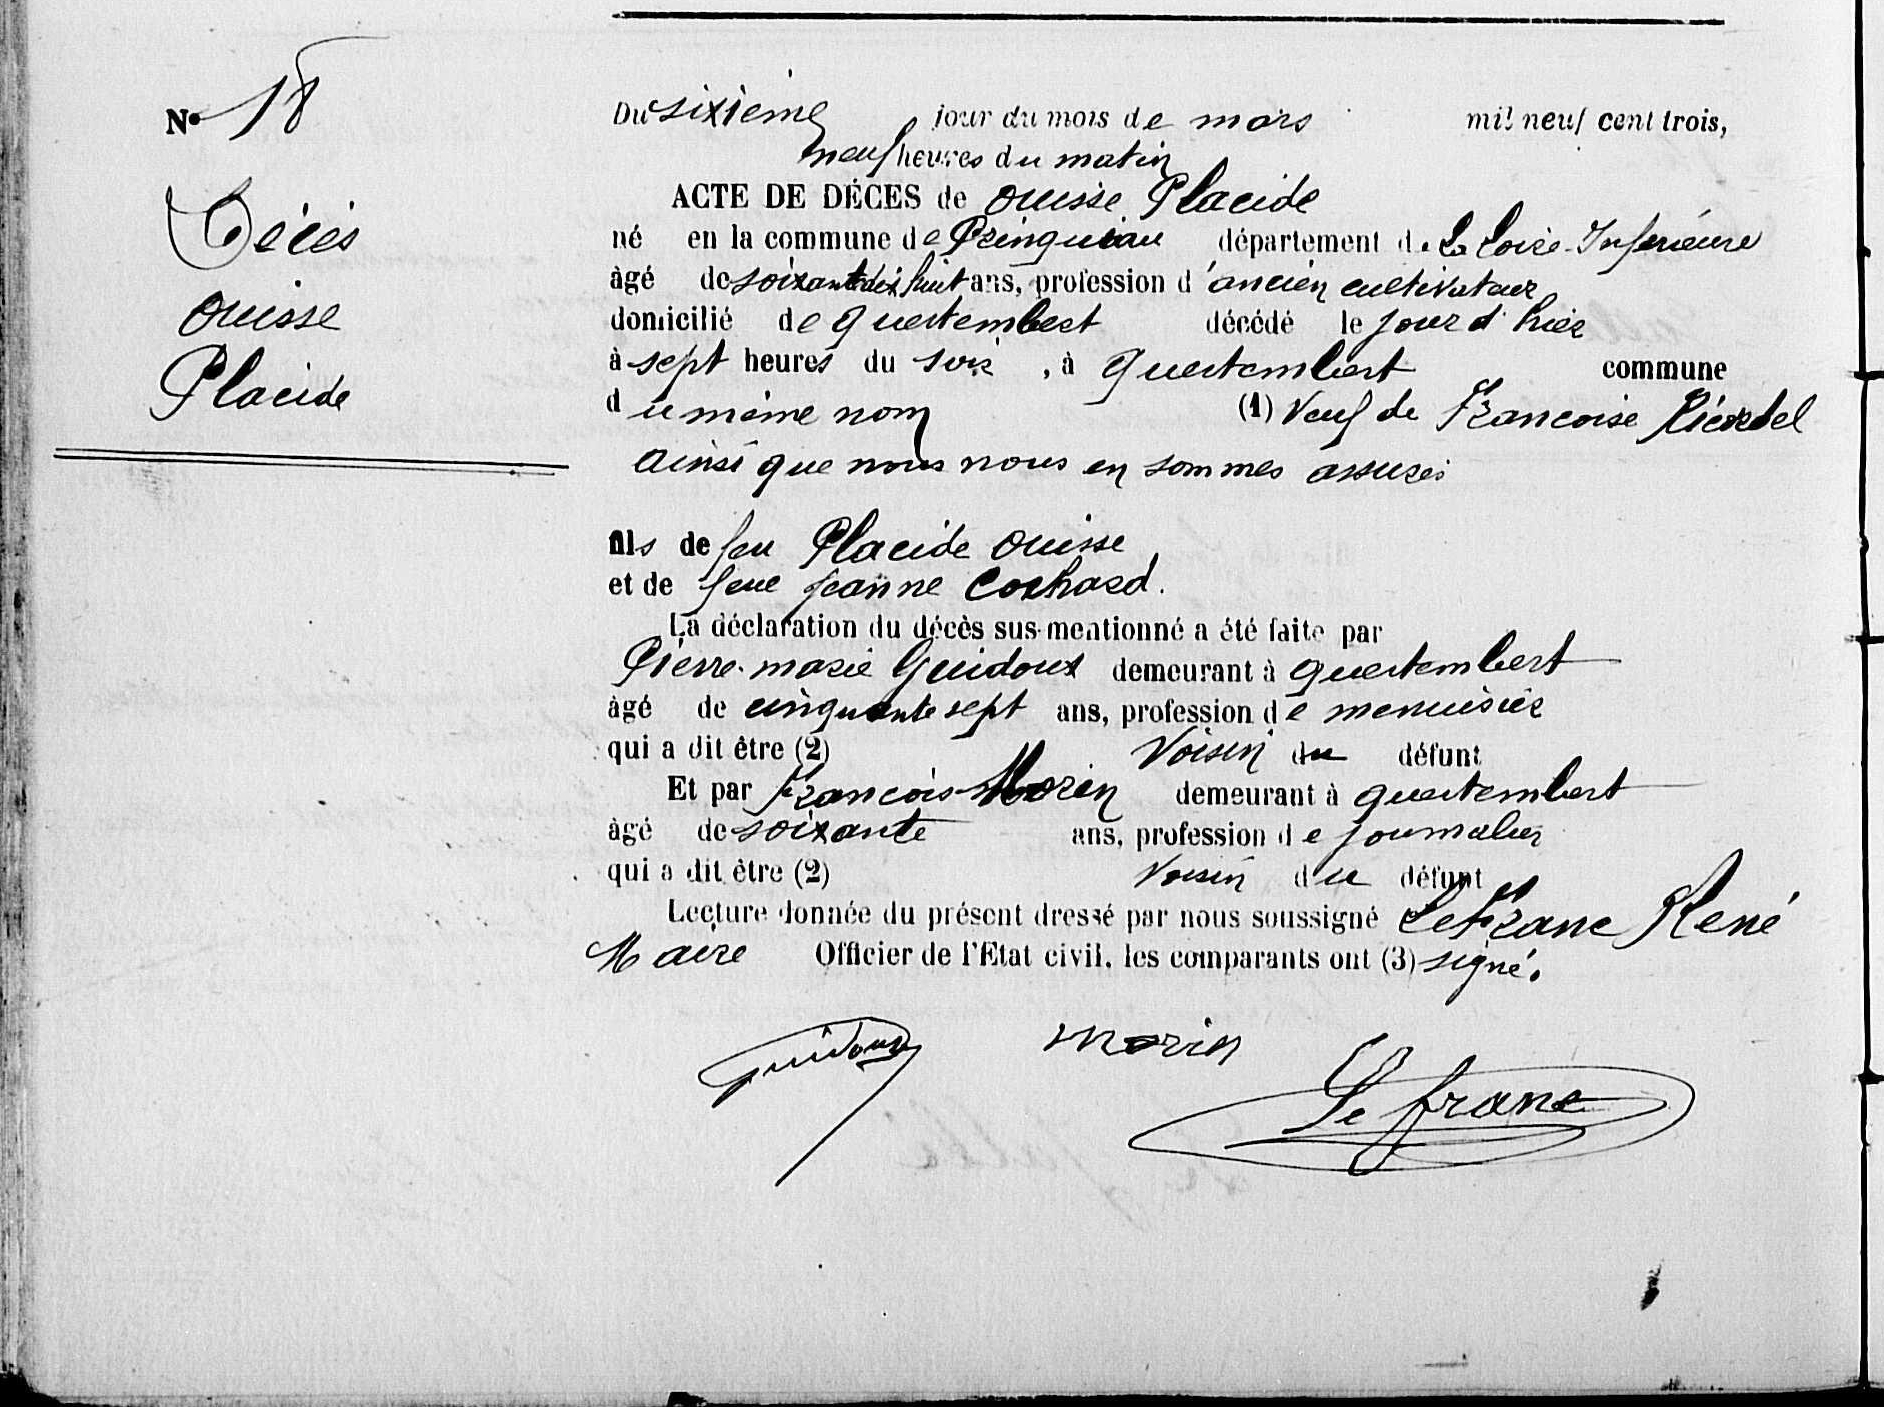 N° 18
Décès
Ouisse
Placide
Du sixième jour du mois de mars mil neuf cent trois,
neuf heures du matin
ACTE DE DÉCES de Ouisse Placide
né en la commune de Prinquiau département de La Loire-Inférieure
âgé de soixante dix huit ans, profession d'ancien cultivateur
domicilié de Questembert décédé le jour d'hier
à sept heures du soir, à Questembert commune
du même nom (1) Veuf de Francoise
ainsi que nous nous en sommes assurés
fils de feu Placide Ouisse
et de feue Jeanne Cochard.
La déclaration du décès sus-mentionné a été faite par
Pierre-marie Guidoux demeurant à Questembert
âgé de cinquante sept ans, profession de menuisier
qui a dit être (2) Voisin du défunt
Et par François Morin demeurant à Questembert
âgé de soixante ans, profession de journalier
qui a dit être (2) Voisin du défunt
Lecture donnée du présent dressé par nous soussigné LeFranc René
Maire Officier de l'Etat civil, les comparants ont (3) signé.
Guidoux morin
Le franc